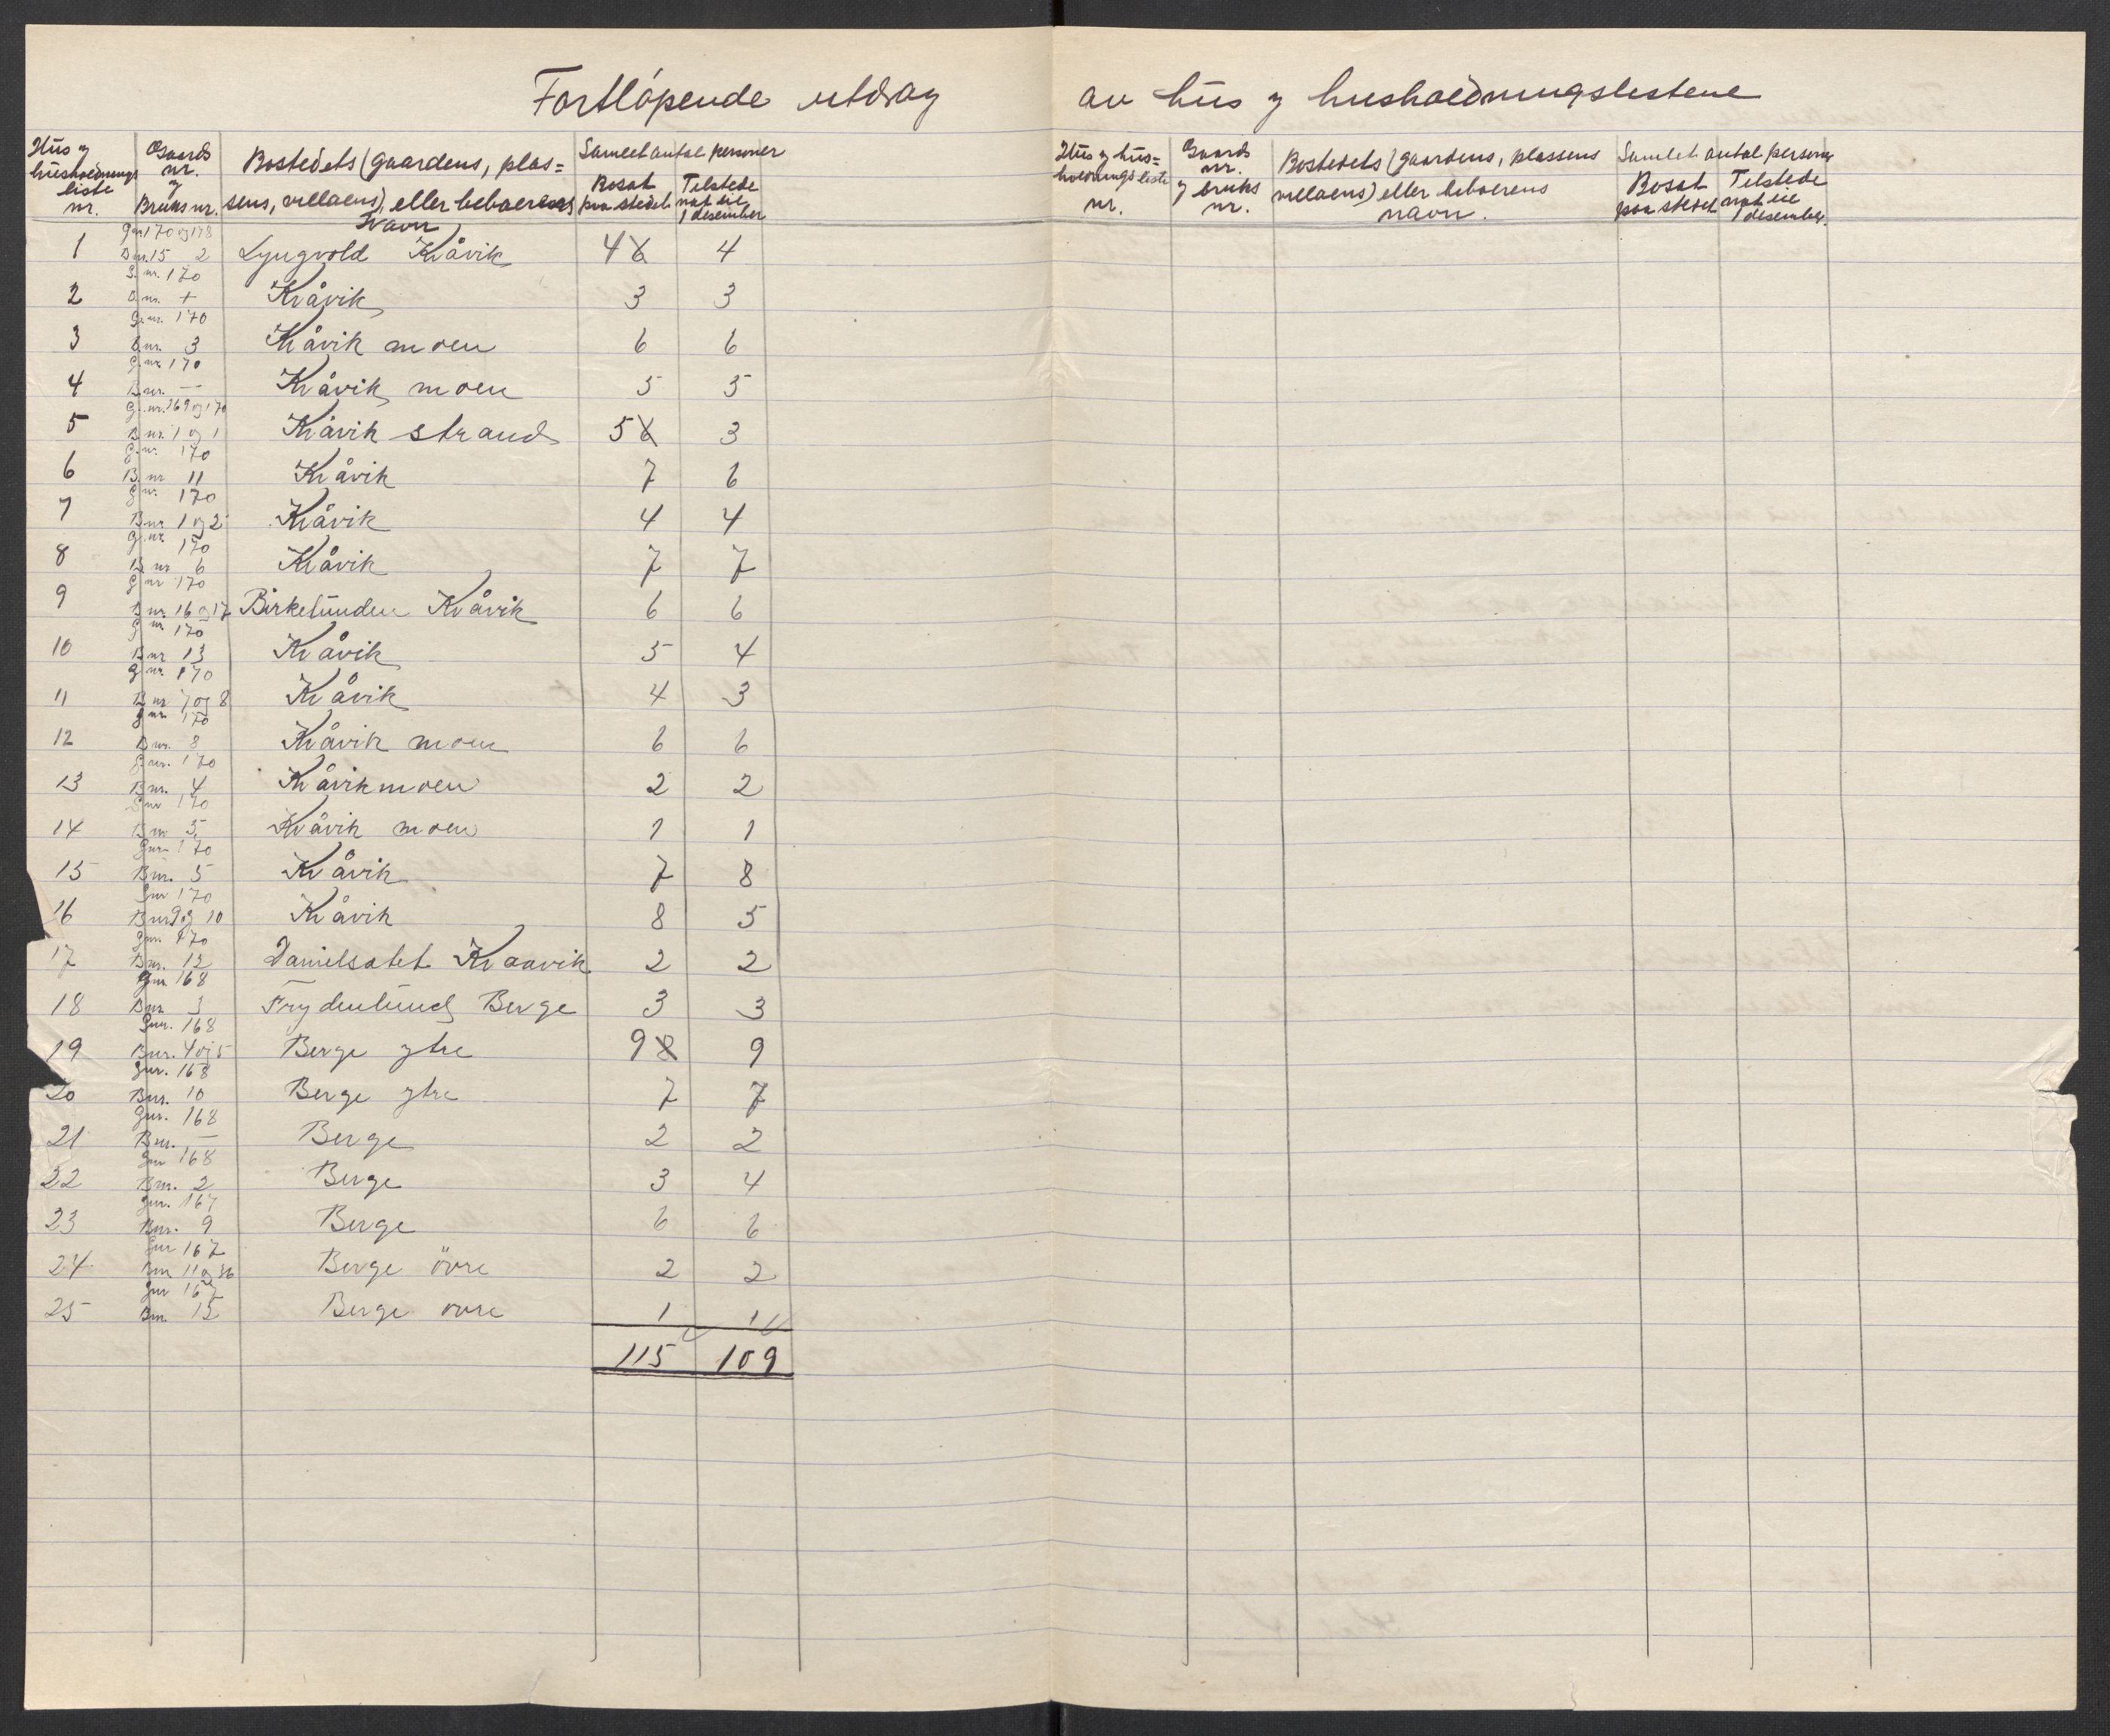 Fortløpende utdrag av hus og husholdningslistene
Hus og husholdnings liste nr. | Gaards nr. og Bruks nr. | Bostedets (gaardens, plassens, villaens), eller beboerens Navn | Samlet antal personer | Bosat paa stedet | Tilstede nat til 1 desember
Gnr 170 og 178
1 Bnr. 15 2 Lyngvold Kvåvik 4 6 4
G. nr. 170
2 B nr. + Kvåvik 3 3
G. nr. 170
3 B nr. 3 Kvåvik moen 6 6
G nr. 170
4 B nr. — Kvåvik moen 5 5
G. nr. 169 og 170
5 B nr. 1 og 1 Kvåvik strand 5 6 3
G. nr. 170
6 B. nr 11 Kvåvik 7 6
G nr. 170
7 B nr 1 og 2 Kvåvik 4 4
G. nr 170
8 B nr 6 Kvåvik 7 7
G nr 170
9 B nr. 16 og 17 Birkelunden Kvåvik 6 6
G nr 170
10 B nr 13 Kvåvik 5 4
G nr. 170
11 B nr 7 og 8 Kvåvik 4 3
G nr 170
12 B nr. 8 Kvåvik moen 6 6
G nr. 170
13 B nr. 4 Kvåvikmoen 2 2
Gnr 170
14 B nr 5 Kvåvik moen 1 1
Gnr 170
15 Bnr. 5 Kvåvik 7 8
Gnr 170
16 Bnr 9 og 10 Kvåvik 8 5
Gnr. 170
17 Bnr. 12 Danielsatet Kvaavik 2 2
Gnr 168
18 Bnr 3 Frydenlund Berge 3 3
Gnr. 168
19 Bnr. 4 og 5 Berge ytre 9 8 9
Gnr. 168
20 Bnr. 10 Berge ytre 7 7
Gnr. 168
21 Bnr. — Berge 2 2
Gnr 168
22 Bnr. 2 Berge 3 4
Gnr. 167
23 Bnr. 9 Berge 6 6
Gnr 167
24 Bnr 11 og 36 Berge övre 2 2
Gnr 167
25 Bnr. 15 Berge övre 1 1
115 109
Hus og husholdnings liste nr. | Gaards nr. og bruks nr. | Bostedets (gaardens, plassens villaens) eller beboerens navn. | Samlet antal personer | Bosat paa stedet | Tilstede nat til 1 desember.